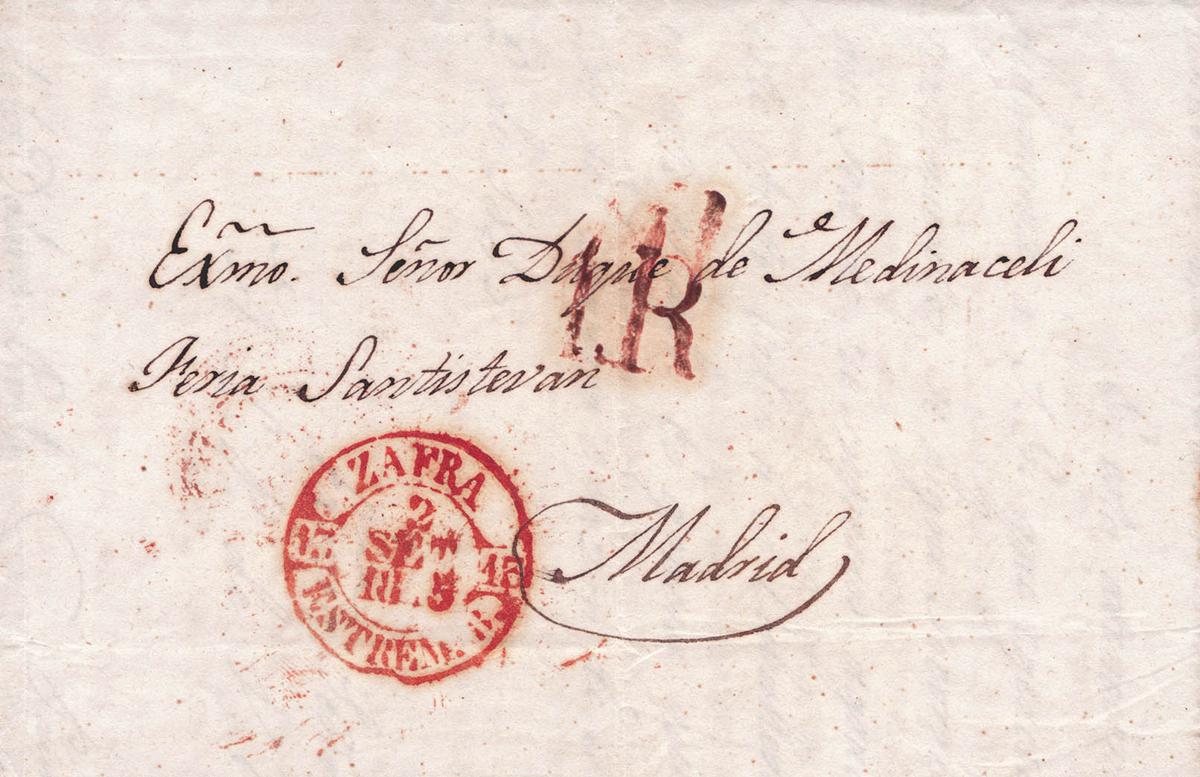 Exm̃o. Señor Duque de Medinaceli
1R
Feria Santistevan
ZAFRA
2
SET
15 15
ESTREM. B.
Madrid